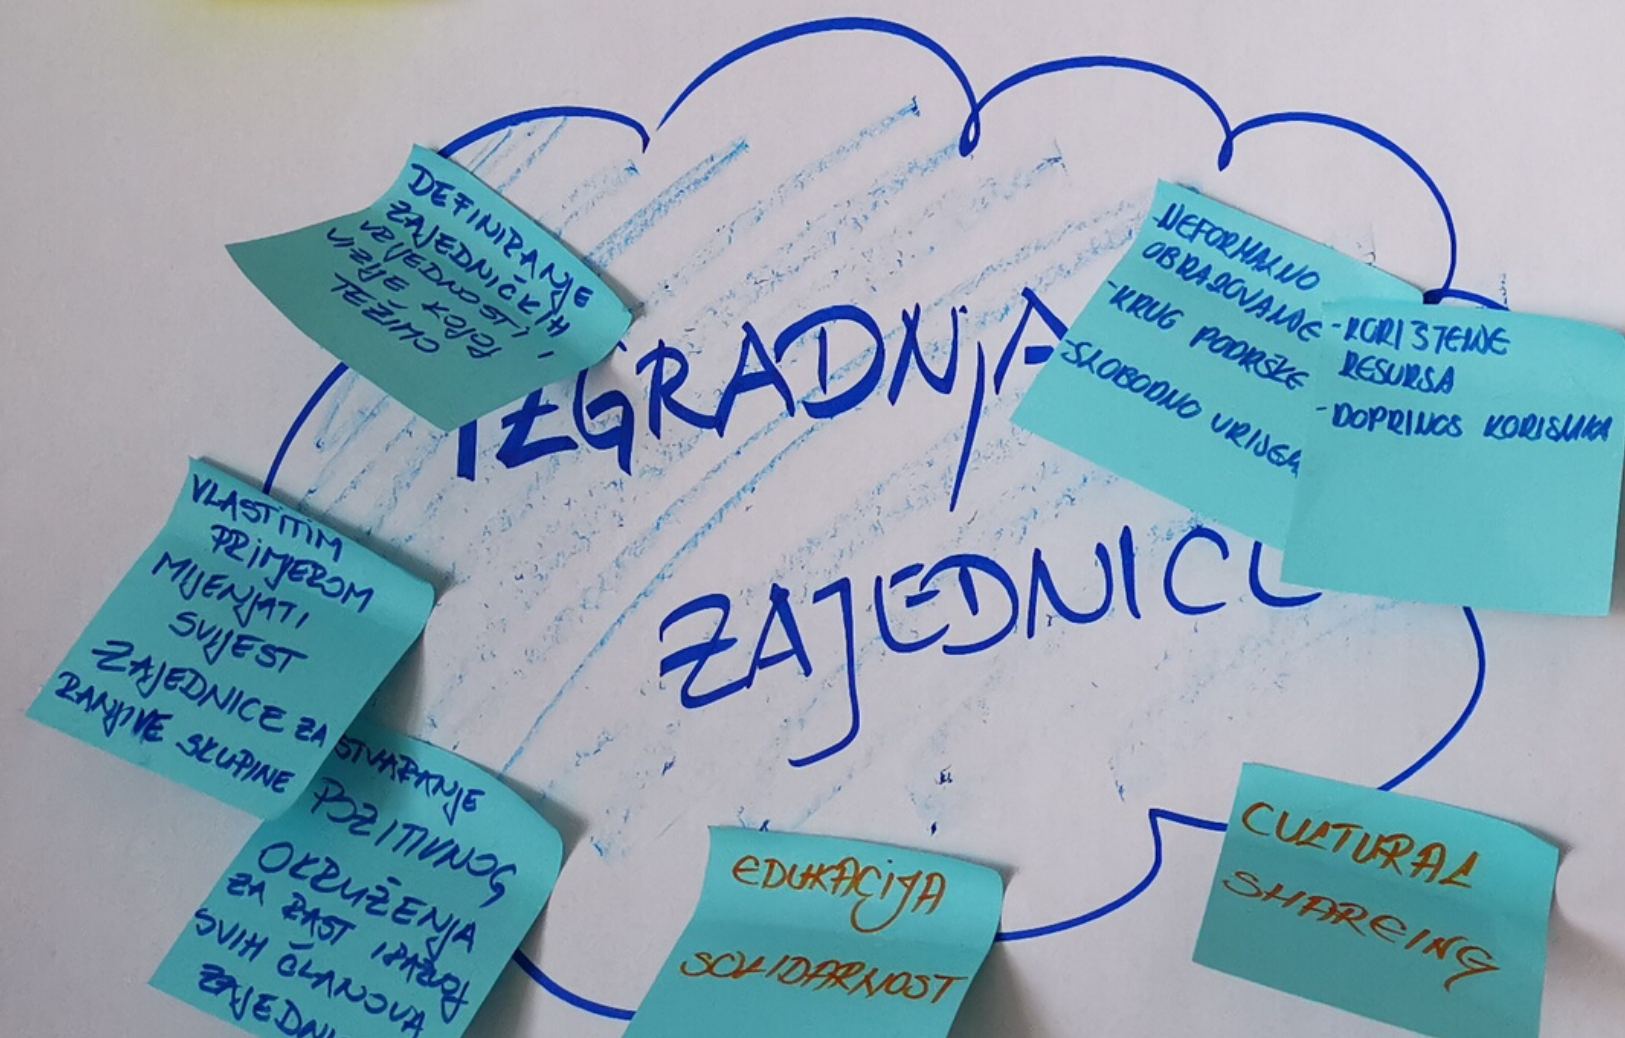 DEFINIRANJE
ZAJEDNIČKIH
VRIJEDNOSTI I
VIZIJE KOJOJ
TEŽIMO
IZGRADNJA
ZAJEDNICE
-NEFORMALNO
OBRAZOVANJE
-KRUG PODRŠKE
-SLOBODNO VRIJEM
-KORIŠTENJE
RESURSA
-DOPRINOS KORISNIKA
VLASTITIM
PRIMJEROM
MIJENJATI
SVIJEST
ZAJEDNICE ZA
RANJIVE SKUPINE
STVARANJE
POZITIVNOG
OKRUŽENJA
ZA RAST I RAZVOJ
SVIH ČLANOVA
ZAJEDNI
EDUKACIJA
SOLIDARNOST
CULTURAL
SHAREING